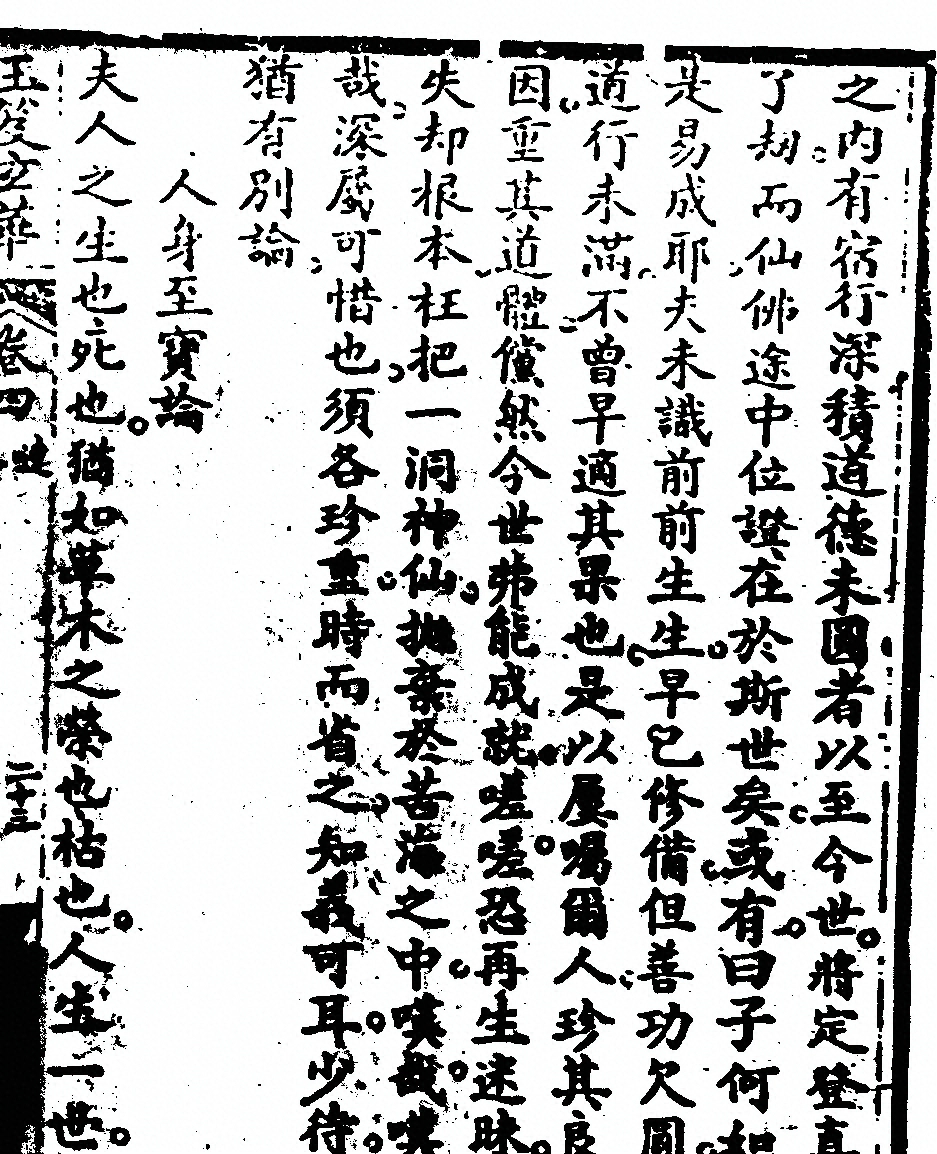 之內有宿行深積道德未圓者以至今世將定登真
了刼而仙佛途中位證在於斯世矣或有曰子何如
是易成耶夫未識前前生生早已修備但善功欠圓
道行未滿不曾早適其果也是以屢囑爾人珍其良
因重其道體儻然今世弗能成就嗟嗟恐再生迷昧
失却根本枉把一洞神仙拋棄於苦海之中嘆哉嘆
哉深屬可惜也須各珍重時而省之知義可耳少待
猶有別論
人身至寶論
夫人之生也死也猶如草木之榮也枯也人生一世
卷四
二十三